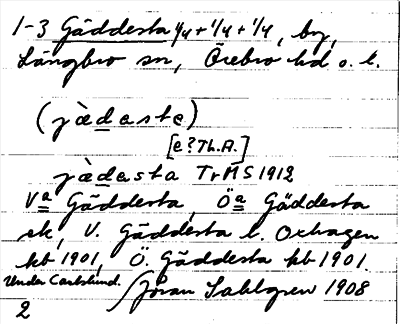 1-3 Gäddesta 1/4 + 1/4 + 1/4, by,
Längbro sn, Örebro hd o. l.
(jàdasta)
[e? Th.A.]
jàdasta TrMS 1912
Va Gäddesta, Öa Gäddesta
ek, V. Gäddesta l. Oxhagen
kb 1901, Ö. Gäddesta kb 1901.
Under Carlslund. Jöran Sahlgren 1908
2